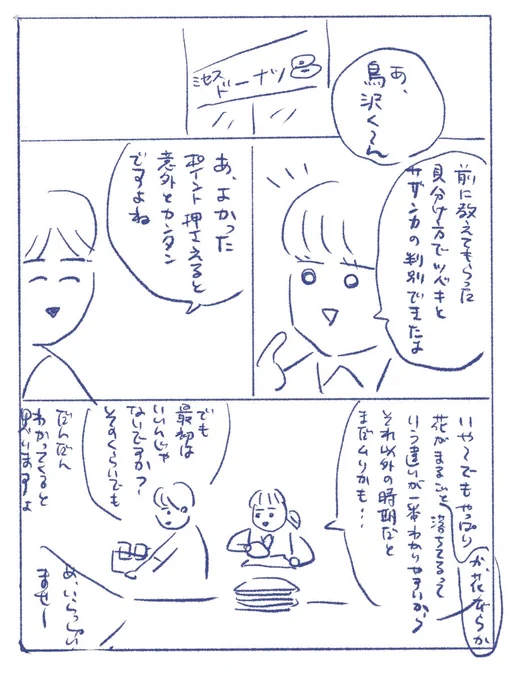 ミセス
ドーナツ
あ、
鳥沢く〜ん
前に教えてもらった
見分け方でツバキと
サザンカの判別できたよ
あ、よかった
ポイント押さえると
意外とカンタン
ですよね
いや〜でもやっぱり
花がまるごと落ちてるって
か、花びらか
いう違いが一番わかりやすいから
それ以外の時期だと
まだムリかも・・
でも
最初は
いいんじゃ
ないですか?
そのくらいでも
だんだん
わかってくると
思いますよ
あ、いらっしゃい
ませー